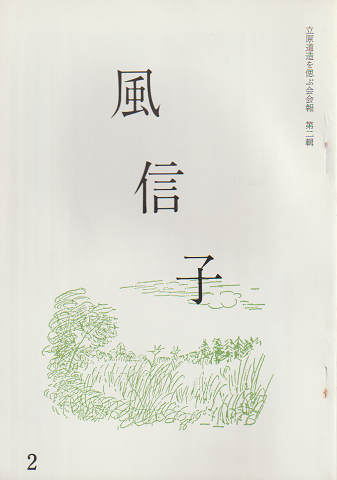 立原道造を偲ぶ会会報 第二輯
風信子
2